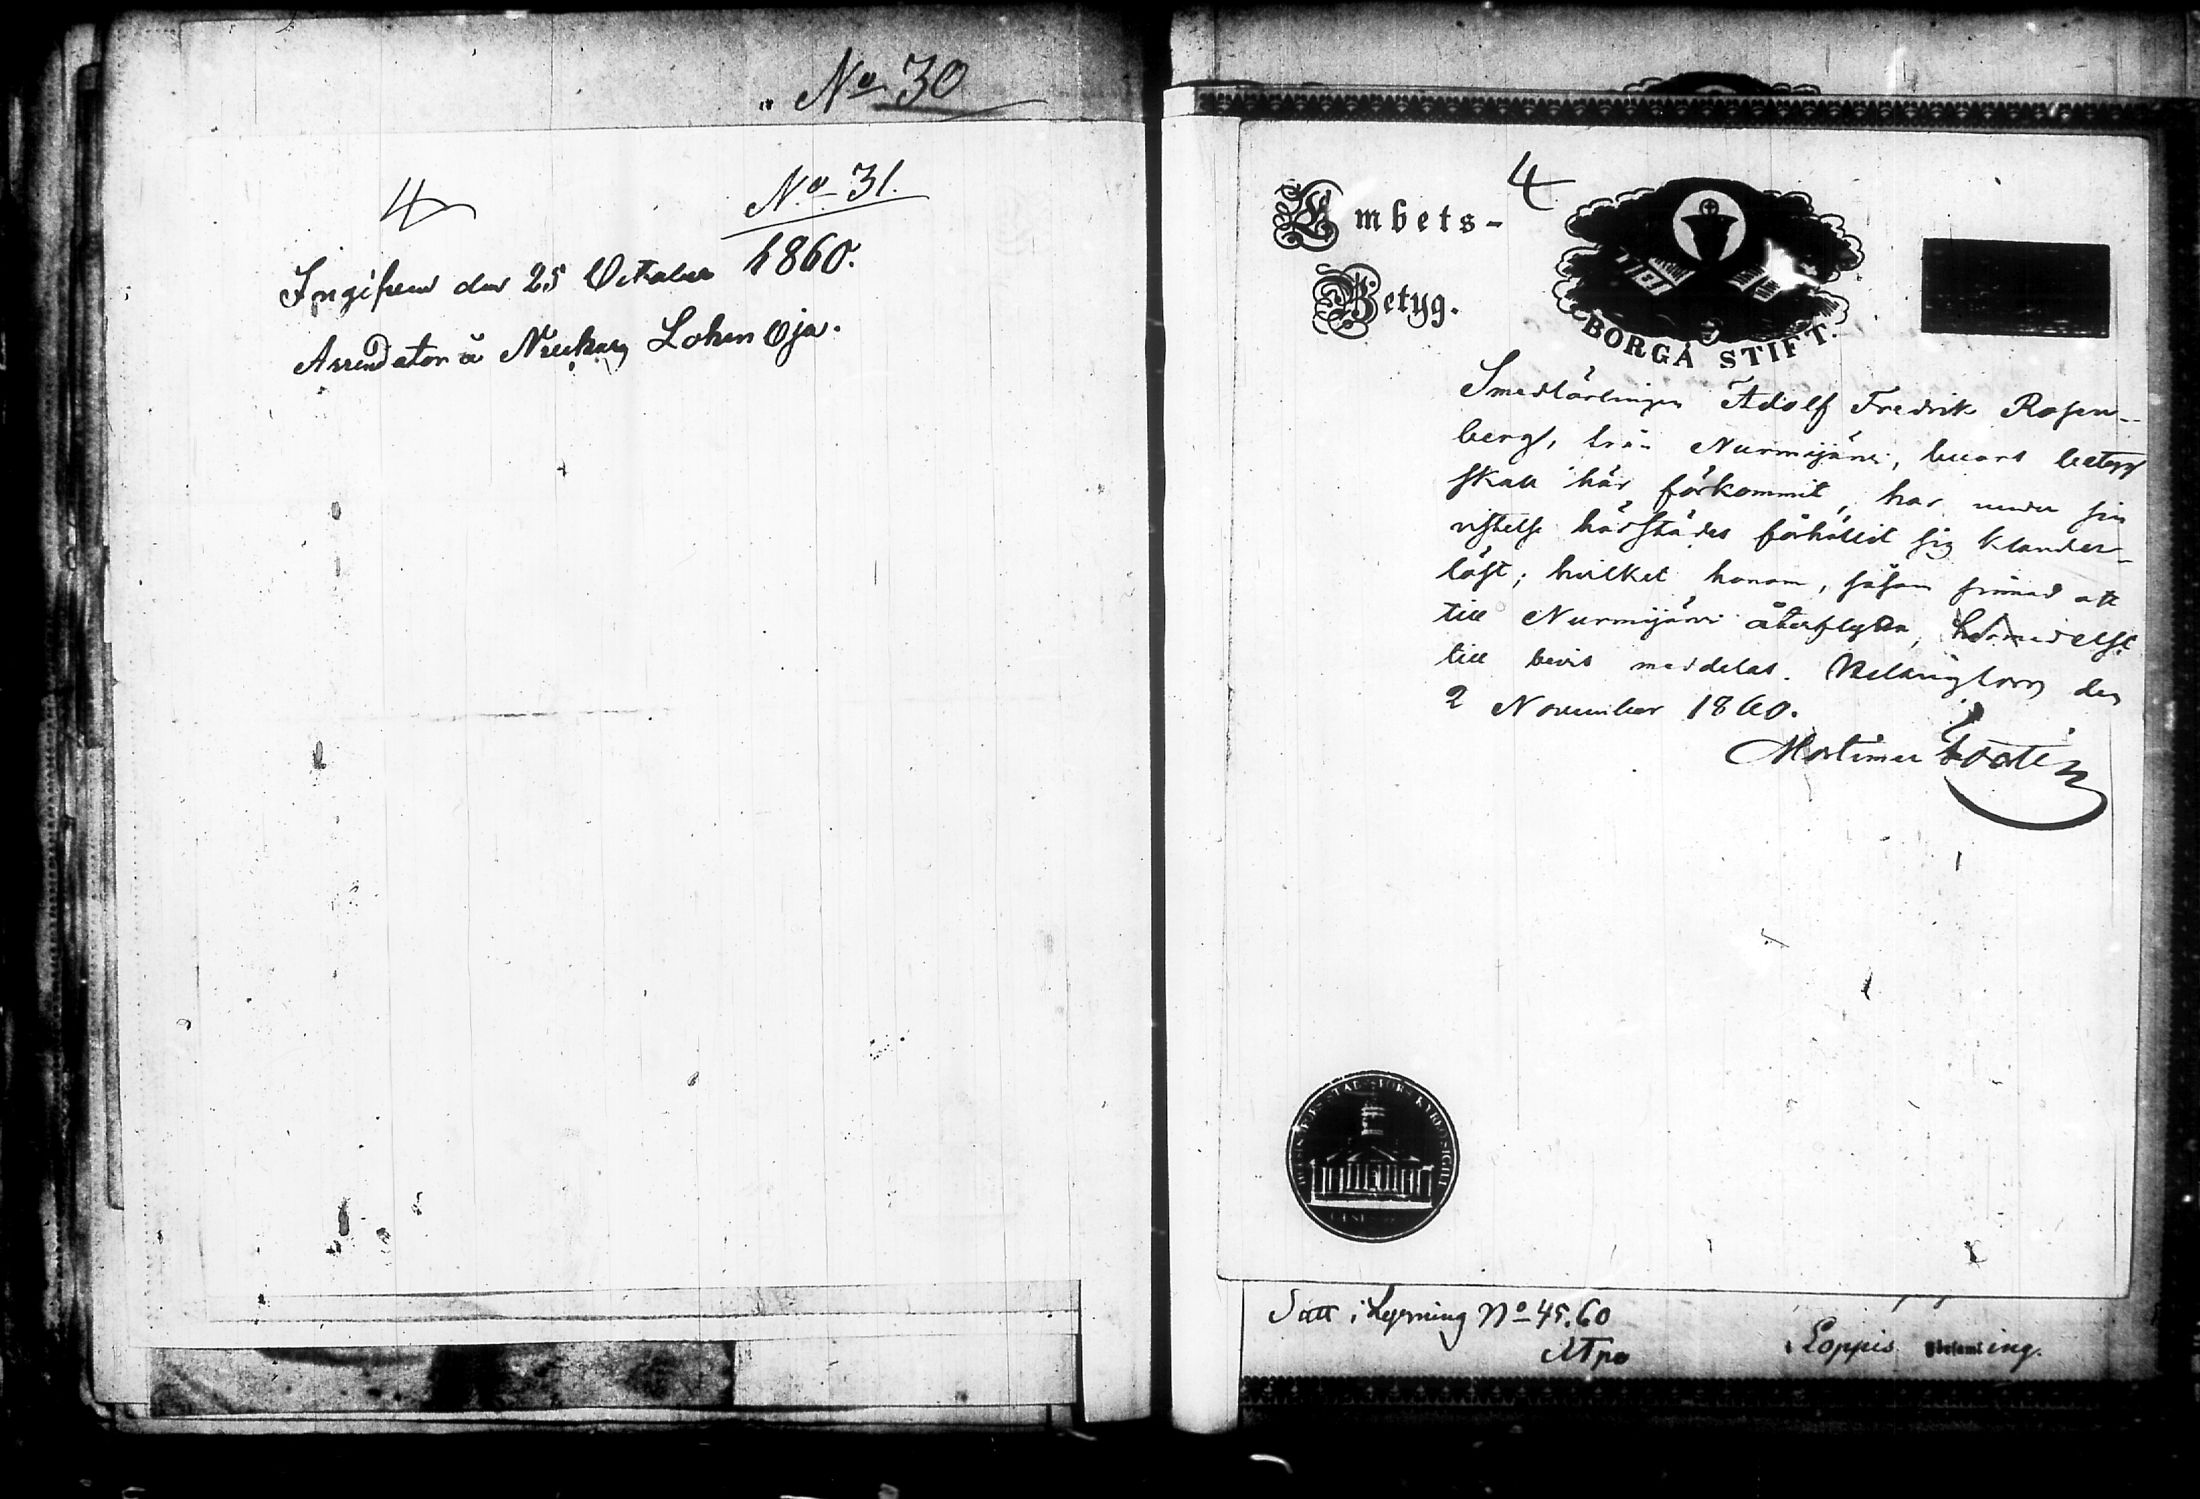 No 30
4
No 31.
Ingifven den 25 October 1860.
Arrendator å Lohm Oja.
4
Embets-
Betyg.
BORGÅ STIFT.
Smedlärlingen Adolf Fredrik Rosen-
berg, från Nurmijärvi, hvars betyg
skall här förkommit, har under sin
vistelse härstädes förhållit sig klander-
löst; hvilket honom, såsom sinnad att
till Nurmijärvi återflytta, härmedelst
till bevis meddelas. Helsingfors den
2 November 1860.
Mortimer
Satt i Lysning No 45.60
Loppis församling.